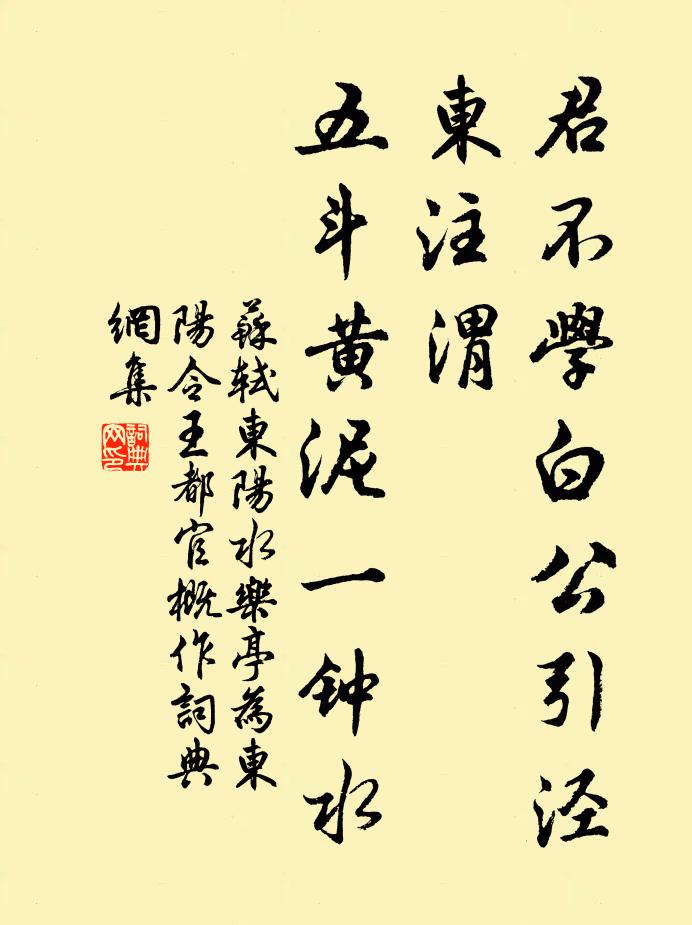 君不學白公引泾
東注渭
五斗黄泥一钟水
蘇軾東陽水樂亭為東
陽令王都官概作詞典
網集
詞典
网印